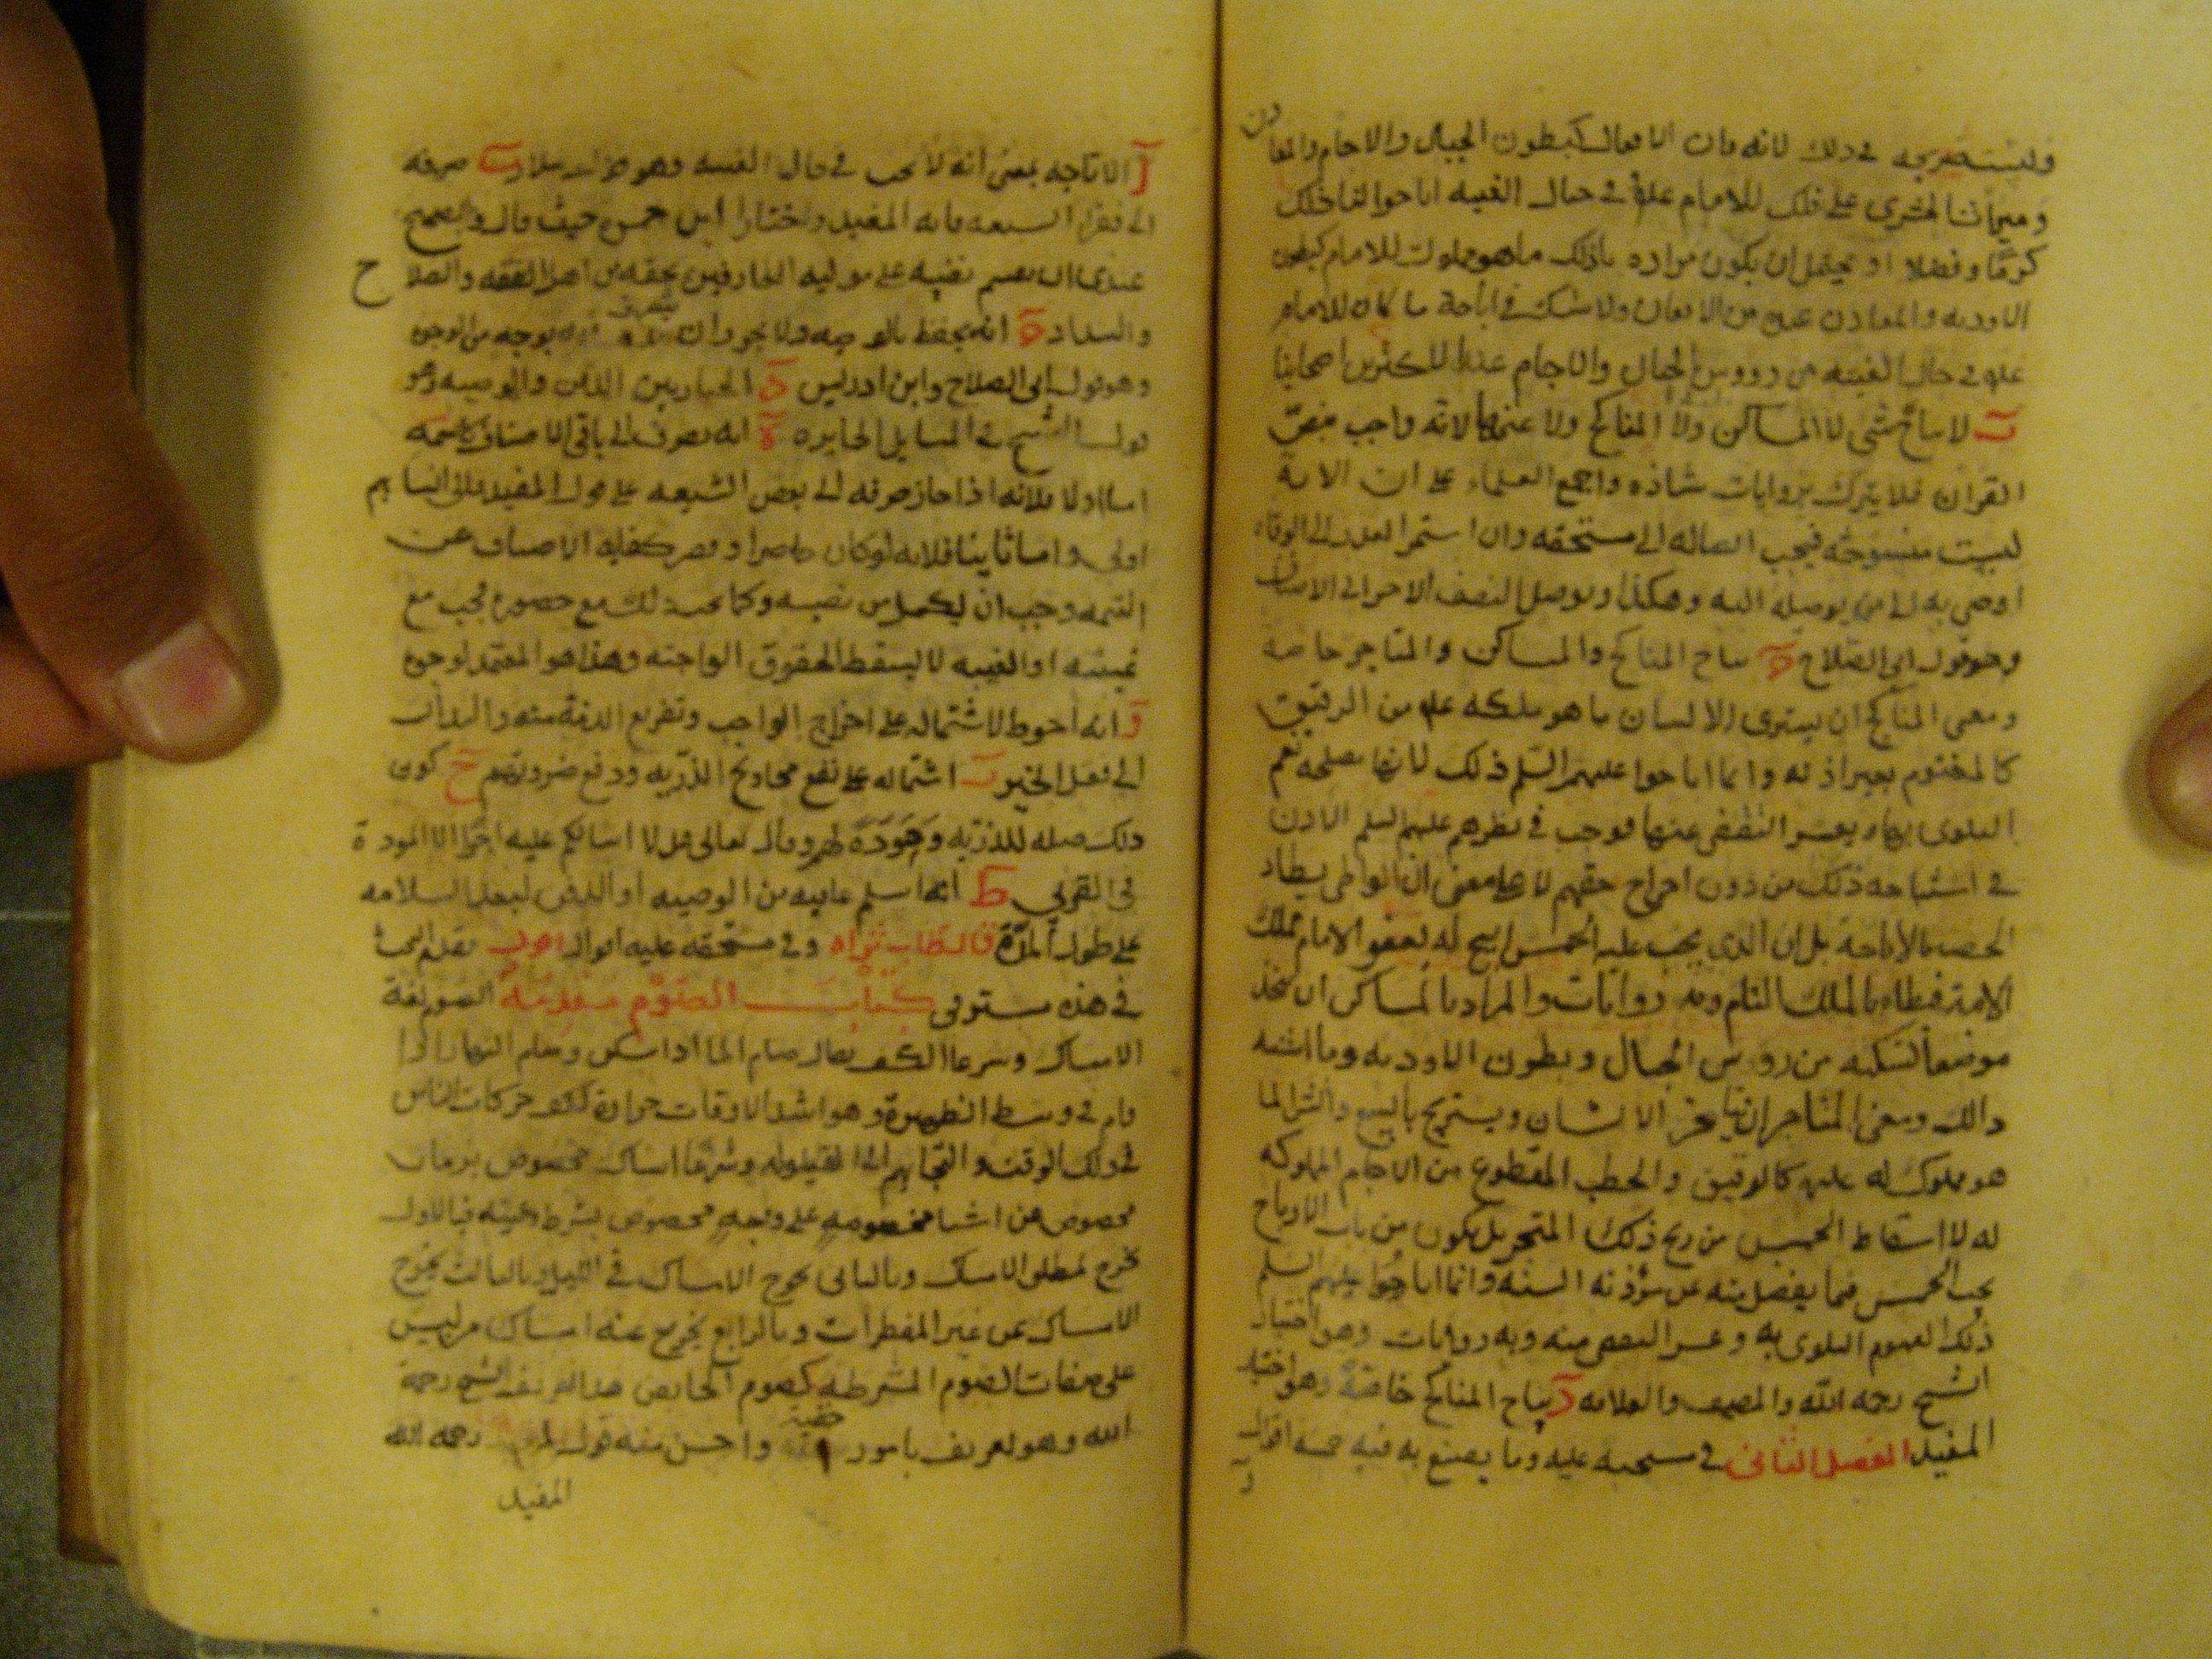 وليست صريحه في ذلك لانه قال الانفال كبطون الجبال والاجام والمعادن
وميراثنا المشري على ذلك للامام علم في حال الغيبه اباحوا لنا ذلك
كرما وفضلا او يحتمل ان يكون مراده بذلك ما هو مملوك للامام كبطون
الاوديه والمعادن عدى من الانفال ولا شك في اباحة ما كان للامام
علم في حال الغيبه من رووس الجبال والاجام عند الاكثرين اصحابنا
ب لا يباح شي لا المساكن ولا المناكح ولا غيرها لانه واجب بنص
القران فلا يترك بروايات شاذه واجمع العلماء على ان الايه
ليست منسوخه فيجب ايصاله الى مستحقه وان استمر العذر الى الوفاه
اوصى به الى من يوصله اليه وهكذا ويوصل النصف الاخر الى الاصناف
وهو قول ابي الصلاح ج يباح المناكح والمساكن والمتاجر خاصه
ومعنى المناكح ان يشترى الانسان ما هو ملكه علم من الرقيق
كالمغنوم بغير اذنه وانما اباحوا عليهم السلم ذلك لانها مصلحه تعم
البلوى بها ويعسر التفصى عنها فوجب في نظرهم عليهم السلم الاذن
في استباحه ذلك من دون اخراج حقهم لا على معنى ان الواطى يطاء
الحصه بالاباحة بل ان الذي يجب عليه الخمس ابيح له بعفو الامام تملك
الامة فيطاء بالملك التام وبه روايات والمراد بالمساكن ان يتخذ
موضعا لسكنه من رووس الجبال وبطون الاوديه وما اشبه
ذالك ومعنى المتاجر ان يتاجر الانسان ويستربح بالبيع والشرا لما
هو مملوك له علم كالرقيق والحطب المقطوع من الاجام المملوكه
له لا اسقاط الخمس من ربح ذلك المتجر بل يكون من باب الارباح
يجب الخمس فيما يفضل منه عن مؤنه السنه وانما اباحوا عليهم السلم
ذلك لعموم البلوى به وعسر التفصى منه وبه روايات وهو اختيار
الشيخ رحمه الله والمصنف والعلامه د يباح المناكح خاصة وهو اختيار
المفيد الفصل الثاني في مستحقه عليه وما يصنع به فيه خمسه اقوال
ا الاباحه بمعنى انه لا يجب في حال الغيبه وهو قول سلار ب صرفه
الى فقراء الشيعه قاله المفيد واختاره ابن حمزه حيث قال والصحيح
عندى ان يقسم نصيبه على مواليه العارفين بحقه من اهل الفقه والصلاح
والسداد ج انه يحفظ بالوصيه ولا يجوز ان يتصرف فيه بوجه من الوجوه
وهو قول ابي الصلاح وابن ادريس د الخيار بين الدفن والوصيه وهو
قول الشيخ في المسايل الحايريه ه انه يصرف الى باقى الاصناف قاسمه
اما اولا فلانه اذا جاز صرفه الى بعض الشيعه على قول المفيد فالى انسابهم
اولى واما ثانيا فلانه لو كان حاضرا وقصر كفايه الاصناف عن
القسمه وجب ان يكمل من نصيبه وكما يجب ذلك مع حضوره يجب مع
غيبته اذ الغيبه لا يسقط الحقوق الواجبه وهذا هو المعتمد لوجوه
ا انه احوط لاشتماله على اخراج الواجب وتفريغ الذمة منه والبدأت
الى فعل الخير ب اشتماله على نفع محاويج الذريه ودفع ضرورتهم ج كون
ذلك صله للذريه ومودة لهم وقال تعالى قل لا اسالكم عليه اجرا الا المودة
في القربى ط انه اسلم عاقبه من الوصيه او الدفن لبعد السلامه
على طول المدة قال طاب ثراه وفي مستحقه عليه اقوال اقول تقدم البحث
في هذه مستوفى كتاب الصوم مقدمه الصوم لغة
الامساك وسرعا الكف يقال صام الما اذا سكن وصام النهار اذا
قام في وسط الظهيرة وهو اشد الاوقات حرارة لكف حركات الناس
في ذلك الوقت والتجايهم الى القيلوله وشرعا امساك مخصوص بزمان
مخصوص عن اشيا مخصوصه على وجه مخصوص بشرط وعينه فبالاول
يخرج مطلق الامساك وبالثانى يخرج الامساك في الليل وبالثالث يخرج
الامساك عن غير المفطرات وبالرابع يخرج عنه امساك من ليس
على صفات الصوم المشرطيه كصوم الحايض هذا تعريف الشيخ رحمه
الله وهو تعريف بامور خفية واحسن منه قول رحمه الله
المفيد